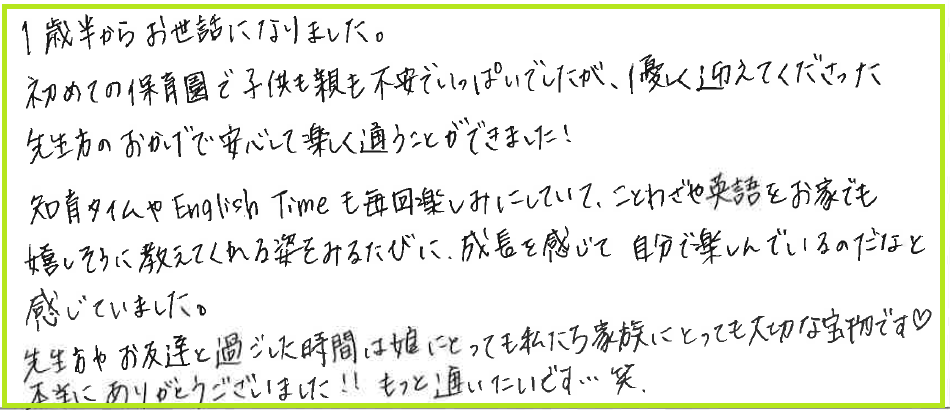 1歳半からお世話になりました。
初めての保育園で子供も親も不安でいっぱいでしたが、優しく迎えてくださった
先生方のおかげで安心して楽しく通うことができました!
知育タイムやEnglish Timeも毎回楽しみにしていて、ことわざや英語をお家でも
嬉しそうに教えてくれる姿をみるたびに、成長を感じて 自分で楽しんでいるのだなと
感じていました。
先生方やお友達と過ごした時間は娘にとっても私たち家族にとっても大切な宝物です♡
本当にありがとうございました!! もっと通いたいです… 笑